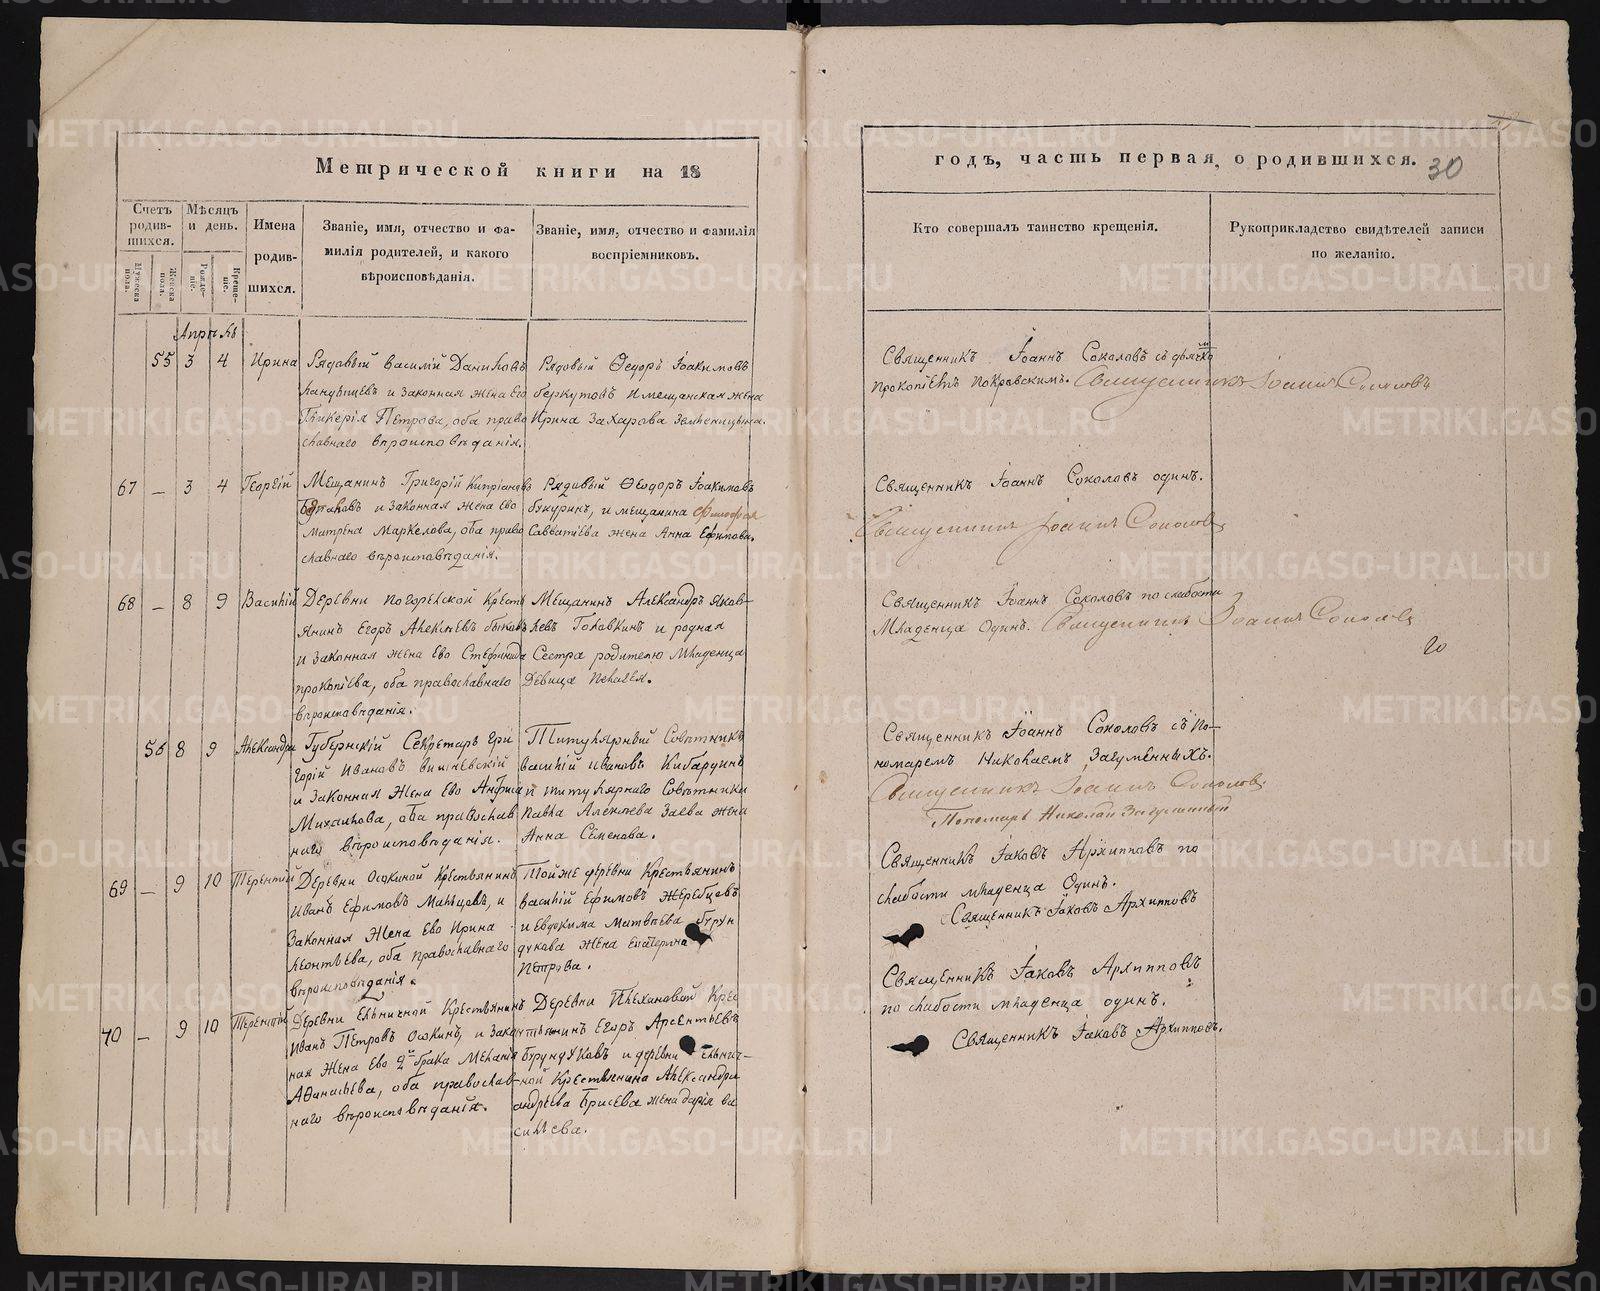 Метрической книги на 18
годъ, часть первая, о родившихся.
30
Счетъ родив-шихся.
Мужеска пола.
Женска пола.
Мѣсяцъ и день.
Рожде-ніе.
Креще-ніе.
Имена родив-шихся.
Званіе, имя, отчество и фа-
милія родителей, и какого
вѣроисповѣданія.
Званіе, имя, отчество и фамилія
воспріемниковъ.
Кто совершалъ таинство крещенія.
Рукоприкладство свидѣтелей записи
по желанію.
Апрѣль
55 3 4 Ирина
Рядовый Василій Даниловъ
и законная жена Его
Гликерія Петрова, оба право
славнаго вѣроисповѣданія.
Рядовый Ѳедоръ Іоакимовъ
беркутовъ и мещанская жена
Ирина Захарова
Священникъ Іоаннъ Соколовъ съ дьячко
Прокопіемъ Покровскимъ. Священникъ Іоаннъ Соколовъ
67 — 3 4 Георгій
Мещанинъ Григорій Кипріановъ
и законная жена Ево
Матрена Маркелова, оба право
славнаго вѣроисповѣданія.
Рядовый Ѳеодоръ Іоакимовъ
и мещанина
Савватіева жена Анна Ефимова.
Священникъ Іоаннъ Соколовъ одинъ.
Священникъ Іоаннъ Соколовъ
68 — 8 9 Василій
Деревни Погорелской Кресть
янинъ Егоръ Алексѣевъ быковъ
и законная жена Ево Стефанида
прокопіева, оба православнаго
вѣроисповѣданія.
Мещанинъ Александръ Яков-
левъ Головкинъ и родная
Сестра родителю Младенца
Девица Пелагея.
Священникъ Іоаннъ Соколовъ по слабости
Младенца Одинъ. Священникъ Іоаннъ Соколовъ
20
56 8 9 Александра
Губернскій Секретарь Гри
горій Ивановъ
и законная Жена Ево Анфиса
Михайлова, оба православ
наго вѣроисповѣданія.
Титулярный Совѣтникъ
василій ивановъ Кибардинъ
и титулярнаго Совѣтника
Павла Алексѣева Заева жена
Анна Семенова.
Священникъ Іоаннъ Соколовъ съ По-
номаремъ Николаемъ Загуменныхъ.
Священникъ Іоаннъ Соколовъ
Пономарь Николай Загуменный
69 — 9 10 Терентій
Деревни Осокиной Крестьянинъ
Иванъ Ефимовъ Мальцевъ, и
Законная Жена Ево Ирина
леонтьева, оба православнаго
вѣроисповѣданія.
Тойже деревни Крестьянинъ
василій Ефимовъ Жеребцовъ
и евдокима Матвѣева бурун
дукова жена Екатерина
Петрова.
Священникъ Іаковъ Архипповъ по
слабости младенца Одинъ.
Священникъ Іаковъ Архипповъ
70 — 9 10 Терентій
Деревни Ельничной Крестьянинъ
Иванъ Петровъ Осокинъ, и Закон
ная Жена Ево 2го брака Меланія
Аѳанасьева, оба православ-
наго вѣроисповѣданія.
Деревни Плехановой Крес
тьянинъ Егоръ Арсентьевъ
Бурундуковъ и деревни Ельнич-
ной Крестьянина Александра
андреева Брисева жена дарія ва
сильева.
Священникъ Іаковъ Архипповъ
по слабости младенца одинъ.
Священникъ Іаковъ Архипповъ.
METRIKI.GASO-URAL.RU